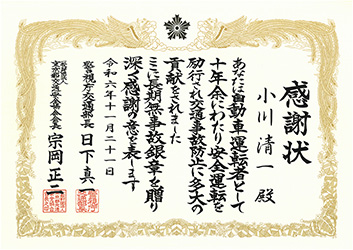 感謝状
小川清一殿
あなたは自動車運転者として
十年余にわたり安全運転を
励行され交通事故防止に多大の
貢献をされました
ここに長期無事故銀章を贈り
深く感謝の意を表します
令和六年十一月二十一日
警視庁交通部長 日下真一
東京都交通安全協会会長 宗岡正二